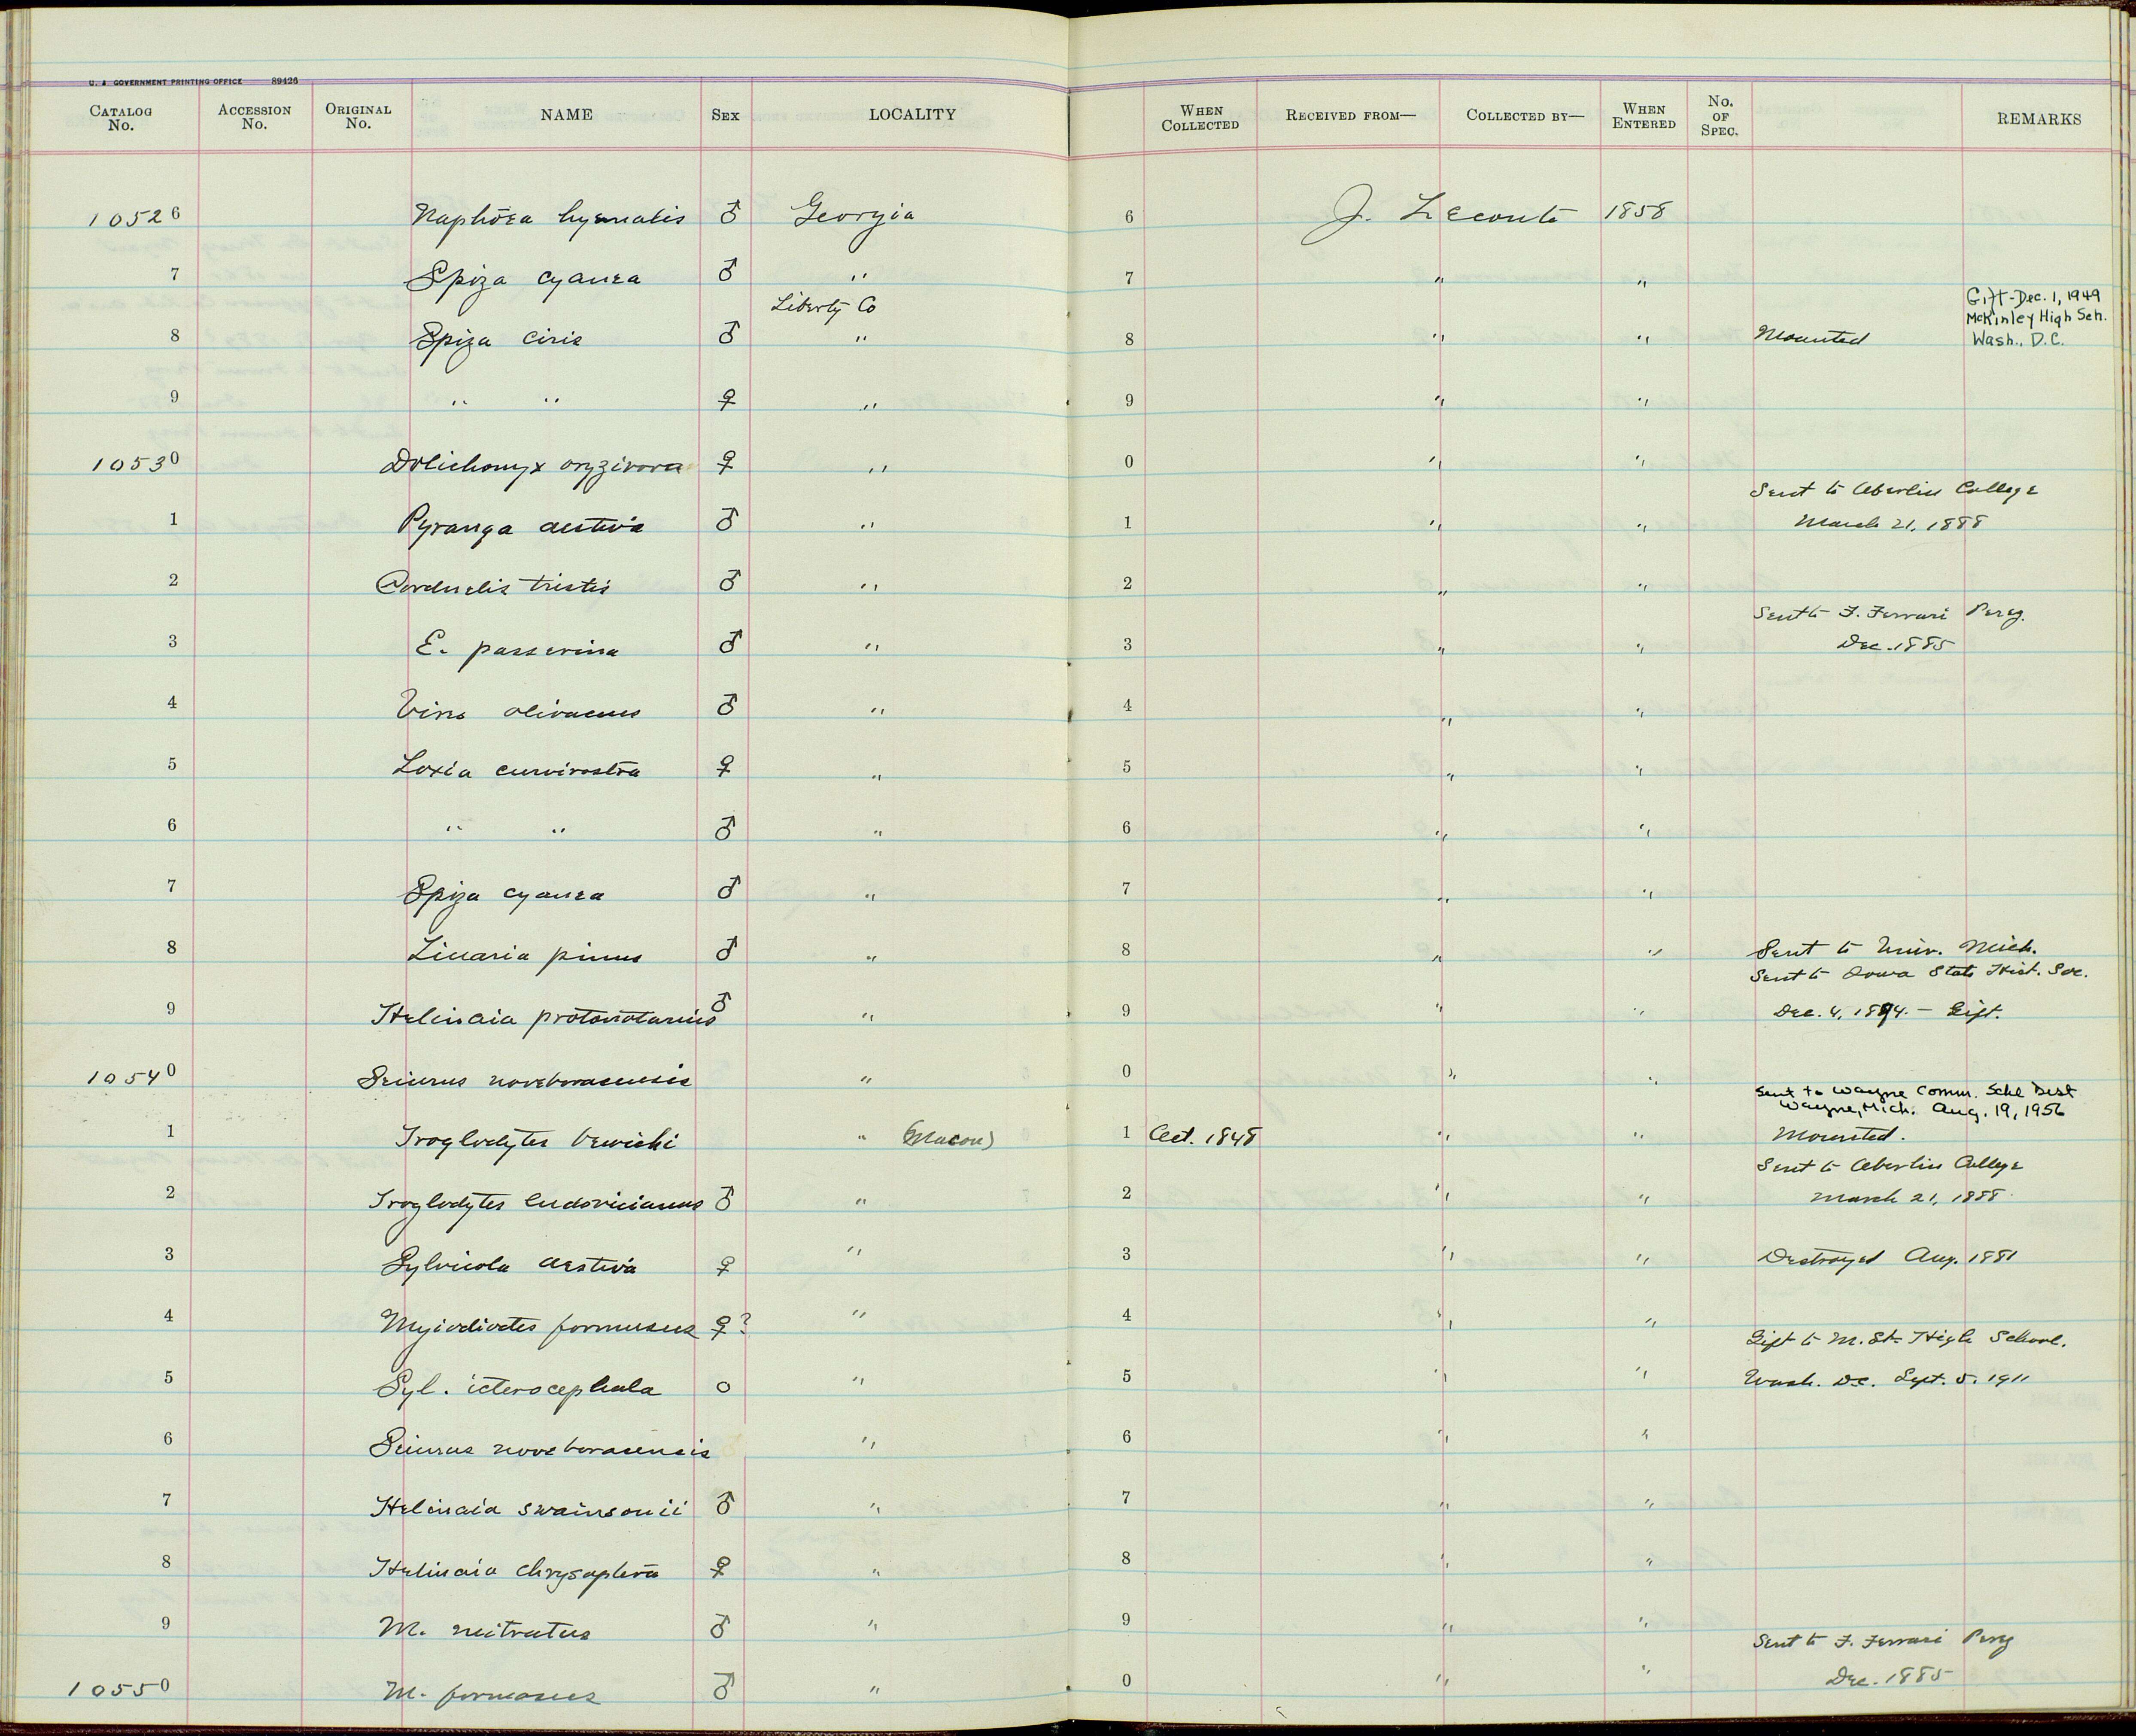 U. S. GOVERNMENT PRINTING OFFICE 89426
CATALOG No. ACCESSION No. ORIGINAL No. NAME SEX LOCALITY WHEN COLLECTED RECEIVED FROM— COLLECTED BY— WHEN ENTERED No. OF SPEC. REMARKS
10526 hyemalis ♂ Georgia 6 J. Leconte 1858
7 Spiza cyanea ♂ " 7 " "
Liberty Co
Gift-Dec. 1, 1949
McKinley High Sch.
8 Spiza ciris ♂ " 8 " " Mounted Wash., D.C.
9 " " ♀ " 9 " "
10530 Dolichonyx oryzivora ♀ " 0 " "
Sent to Oberlin College
1 Pyranga aestiva ♂ " 1 " " March 21, 1888
2 Carduelis tristis ♂ " 2 " "
Sent to F. Ferrari Perez.
3 E. passerina ♂ " 3 " " Dec. 1885
4 Vireo olivaceus ♂ " 4 " "
5 Loxia curvirostra ♀ " 5 " "
6 " " ♂ " 6 " "
7 Spiza cyanea ♂ " 7 " "
8 Linaria pinus ♂ " 8 " " Sent to Univ. Mich.
Sent to Iowa State Hist. Soc.
9 Helinaia protonotarius ♂ " 9 " " Dec. 4, 1894. — Gift.
10540 Seiurus noveboracensis " 0 " "
Sent to Wayne Comm. Schl Dist
Wayne, Mich. Aug. 19, 1956
1 Troglodytes bewicki " (Macon) 1 Oct. 1848 " " Mounted.
Sent to Oberlin College
2 Troglodytes ludovicianus ♂ " 2 " " March 21, 1888.
3 Sylvicola aestiva ♀ " 3 " " Destroyed Aug. 1881
4 Myiodioctes formosus ♀? " 4 " "
Gift to M. St. High School.
5 Syl. icterocephala o " 5 " " Wash. D.C. Sept. 5, 1911
6 Seiurus noveboracensis " 6 " "
7 Helinaia swainsonii ♂ " 7 " "
8 Helinaia chrysoptera ♀ " 8 " "
9 M. mitratus ♂ " 9 " "
Sent to F. Ferrari Perez
10550 M. formosus ♂ " 0 " " Dec. 1885